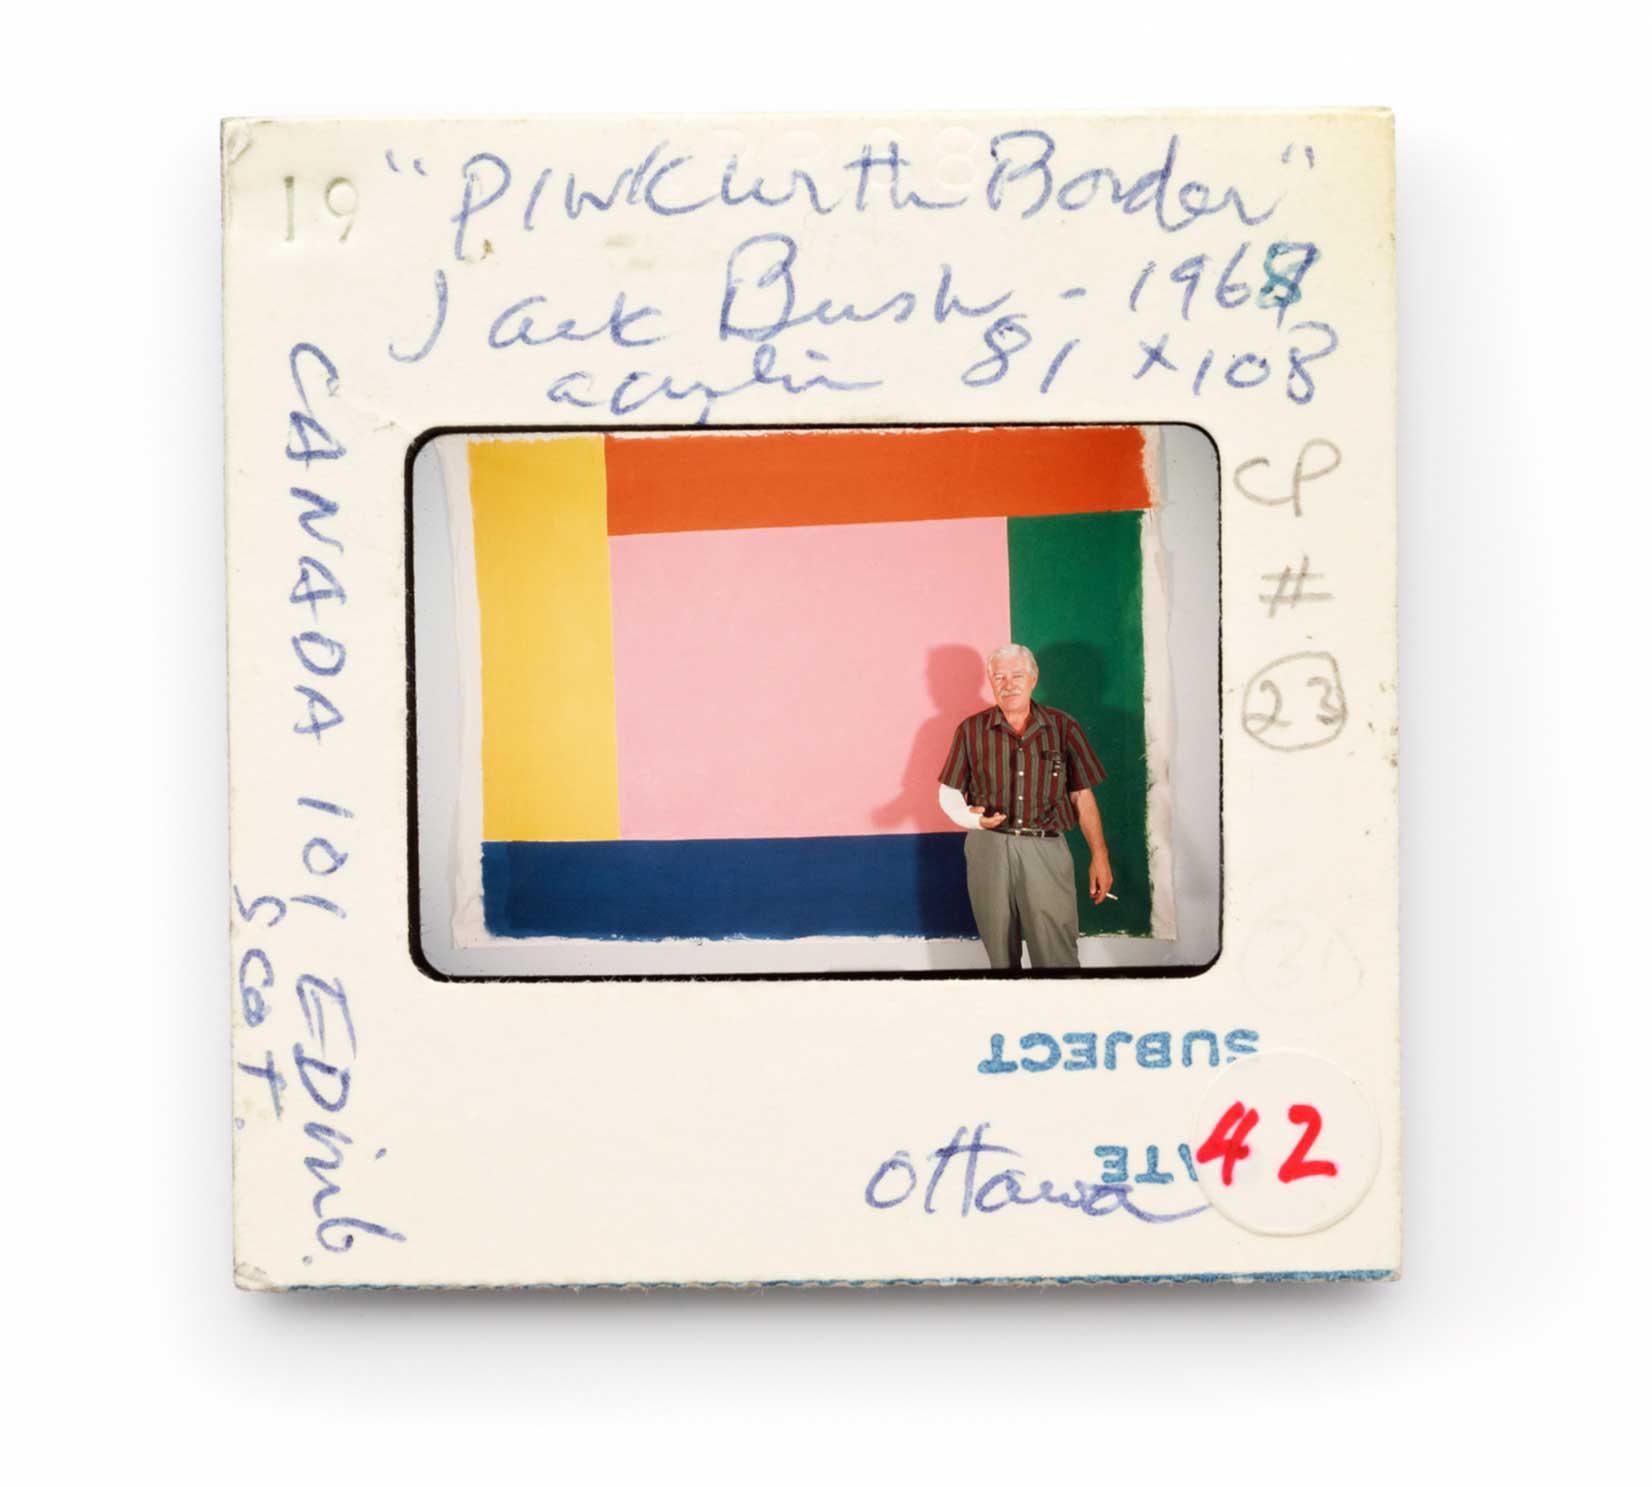 19
"Pink with Border"
Jack Bush - 1967
acrylic 81 x 108
CANADA 101 EDinb.
SCOT.
CP
#
23
31
SUBJECT
ATE
Ottawa
42